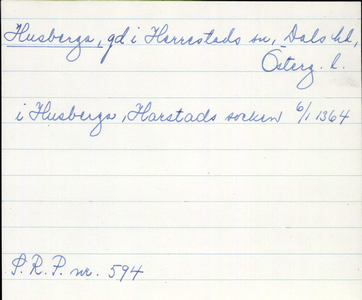 Husberga, gd i Herrestads sn, Dals hd,
Österg. l.
i Husberga, Harstads socken 6/1 1364
P.R.P. nr. 594